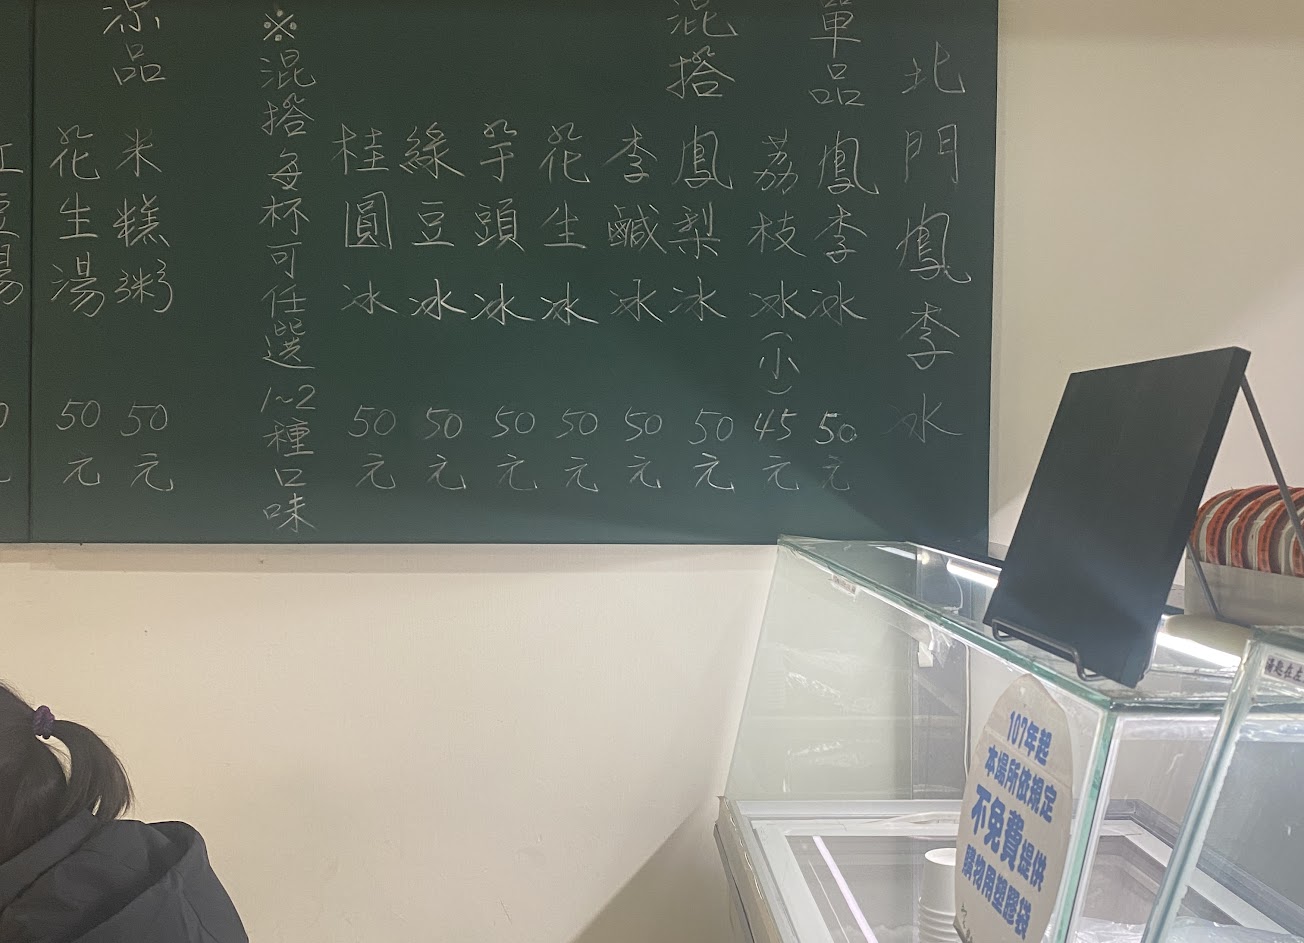 北門鳳李冰
單品
鳳李冰 50元
荔枝冰(小) 45元
混搭
鳳梨冰 50元
李鹹冰 50元
花生冰 50元
芋頭冰 50元
綠豆冰 50元
桂圓冰 50元
※混搭每杯可任選1~2種口味
涼品
米糕粥 50元
花生湯 50元
107年起
本場所依規定
不免費提供
購物用塑膠袋